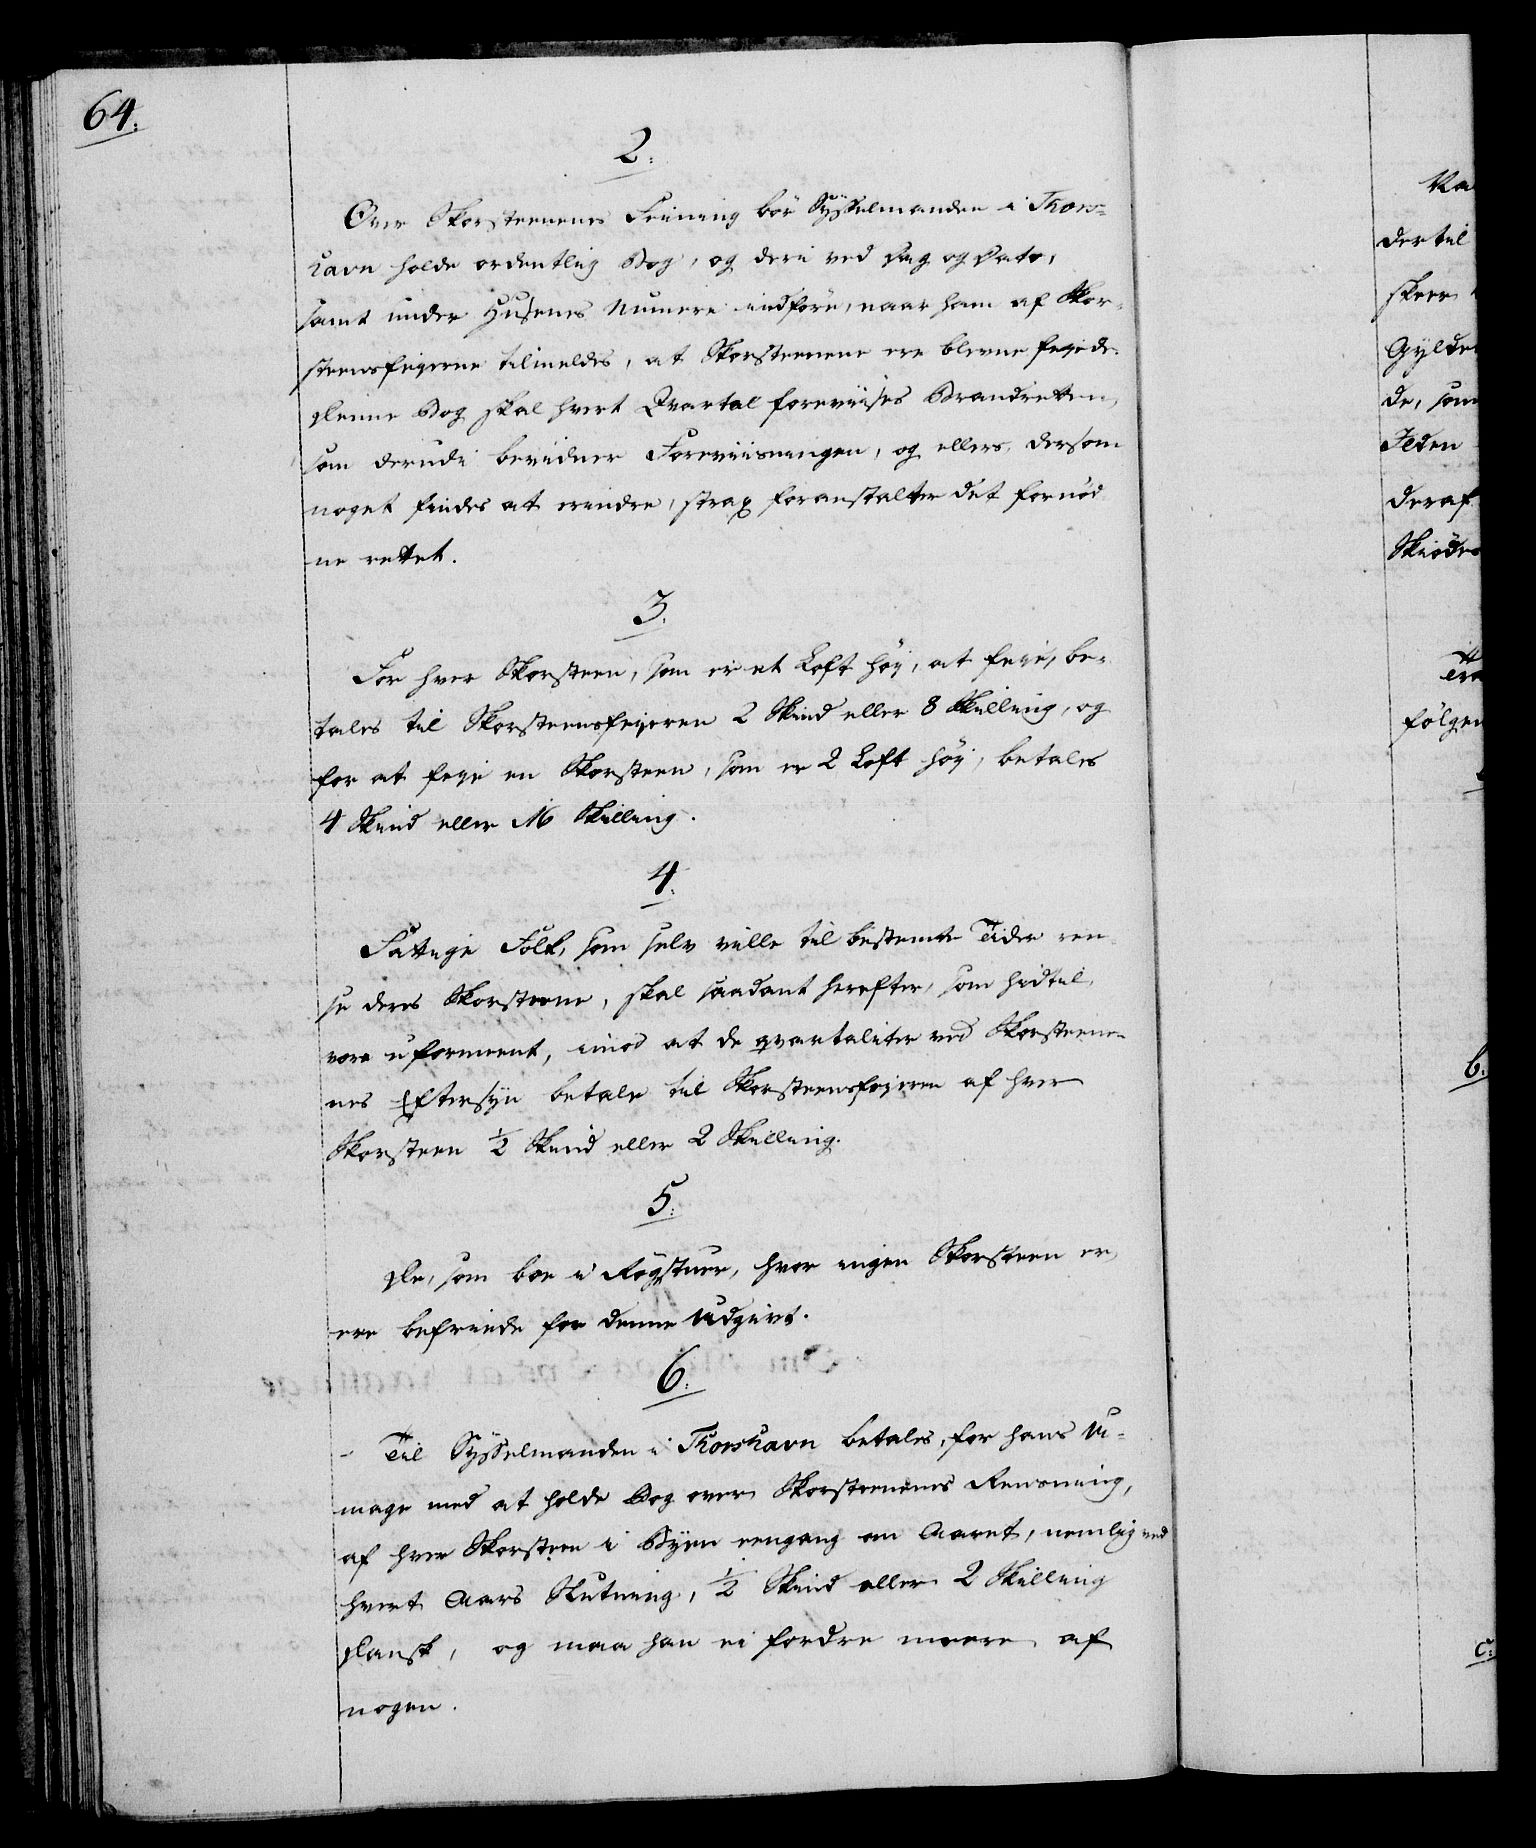 64.
2.
Over Skorsteenenes Feining bør Sysselmanden i Thors-
havn holde ordentlig Bog, og deri ved Dag og Dato,
samt under Husenes Numere indføre, naar ham af Skor-
steensfeierne tilmeldes, at Skorsteenene ere blevne feiede.
Denne Bog skal hvert Qvartal foreviises Brandretten,
som derudi bevidner Foreviisningen, og ellers, dersom
noget findes at erindre, strax foranstalter det fornød-
ne rettet.
3.
For hver Skorsteen, som er et Loft høj, at feje, be-
tales til Skorsteensfejeren 2 Skind eller 8 Skilling, og
for at feje en Skorsteen, som er 2 Loft høj, betales
4 Skind eller 16 Skilling.
4.
Fattige Folk, som selv ville til bestemte Tider ren-
se deres Skorsteene, skal saadant herefter, som hidtil,
være uforment, imod at de qvartaliter ved Skorsteene-
nes Eftersyn betale til Skorsteensfejeren af hver
Skorsteen ½ Skind eller 2 Skilling.
5.
De, som boe i Røgstuer, hvor ingen Skorsteen er,
ere befriede for denne Udgivt.
6.
Til Sysselmanden i Thorshavn betales, for hans U-
mage med at holde Bog over Skorsteenenes Rensning,
af hver Skorsteen i Byen eengang om Aaret, nemlig ved
hvert Aars Slutning, ½ Skind eller 2 Skilling
Dansk, og maa han ei fordre meere af
nogen.
dertil
skeer
Gylde
de, som
Ilden
deraf
Skiøde
følgen
b.
c.